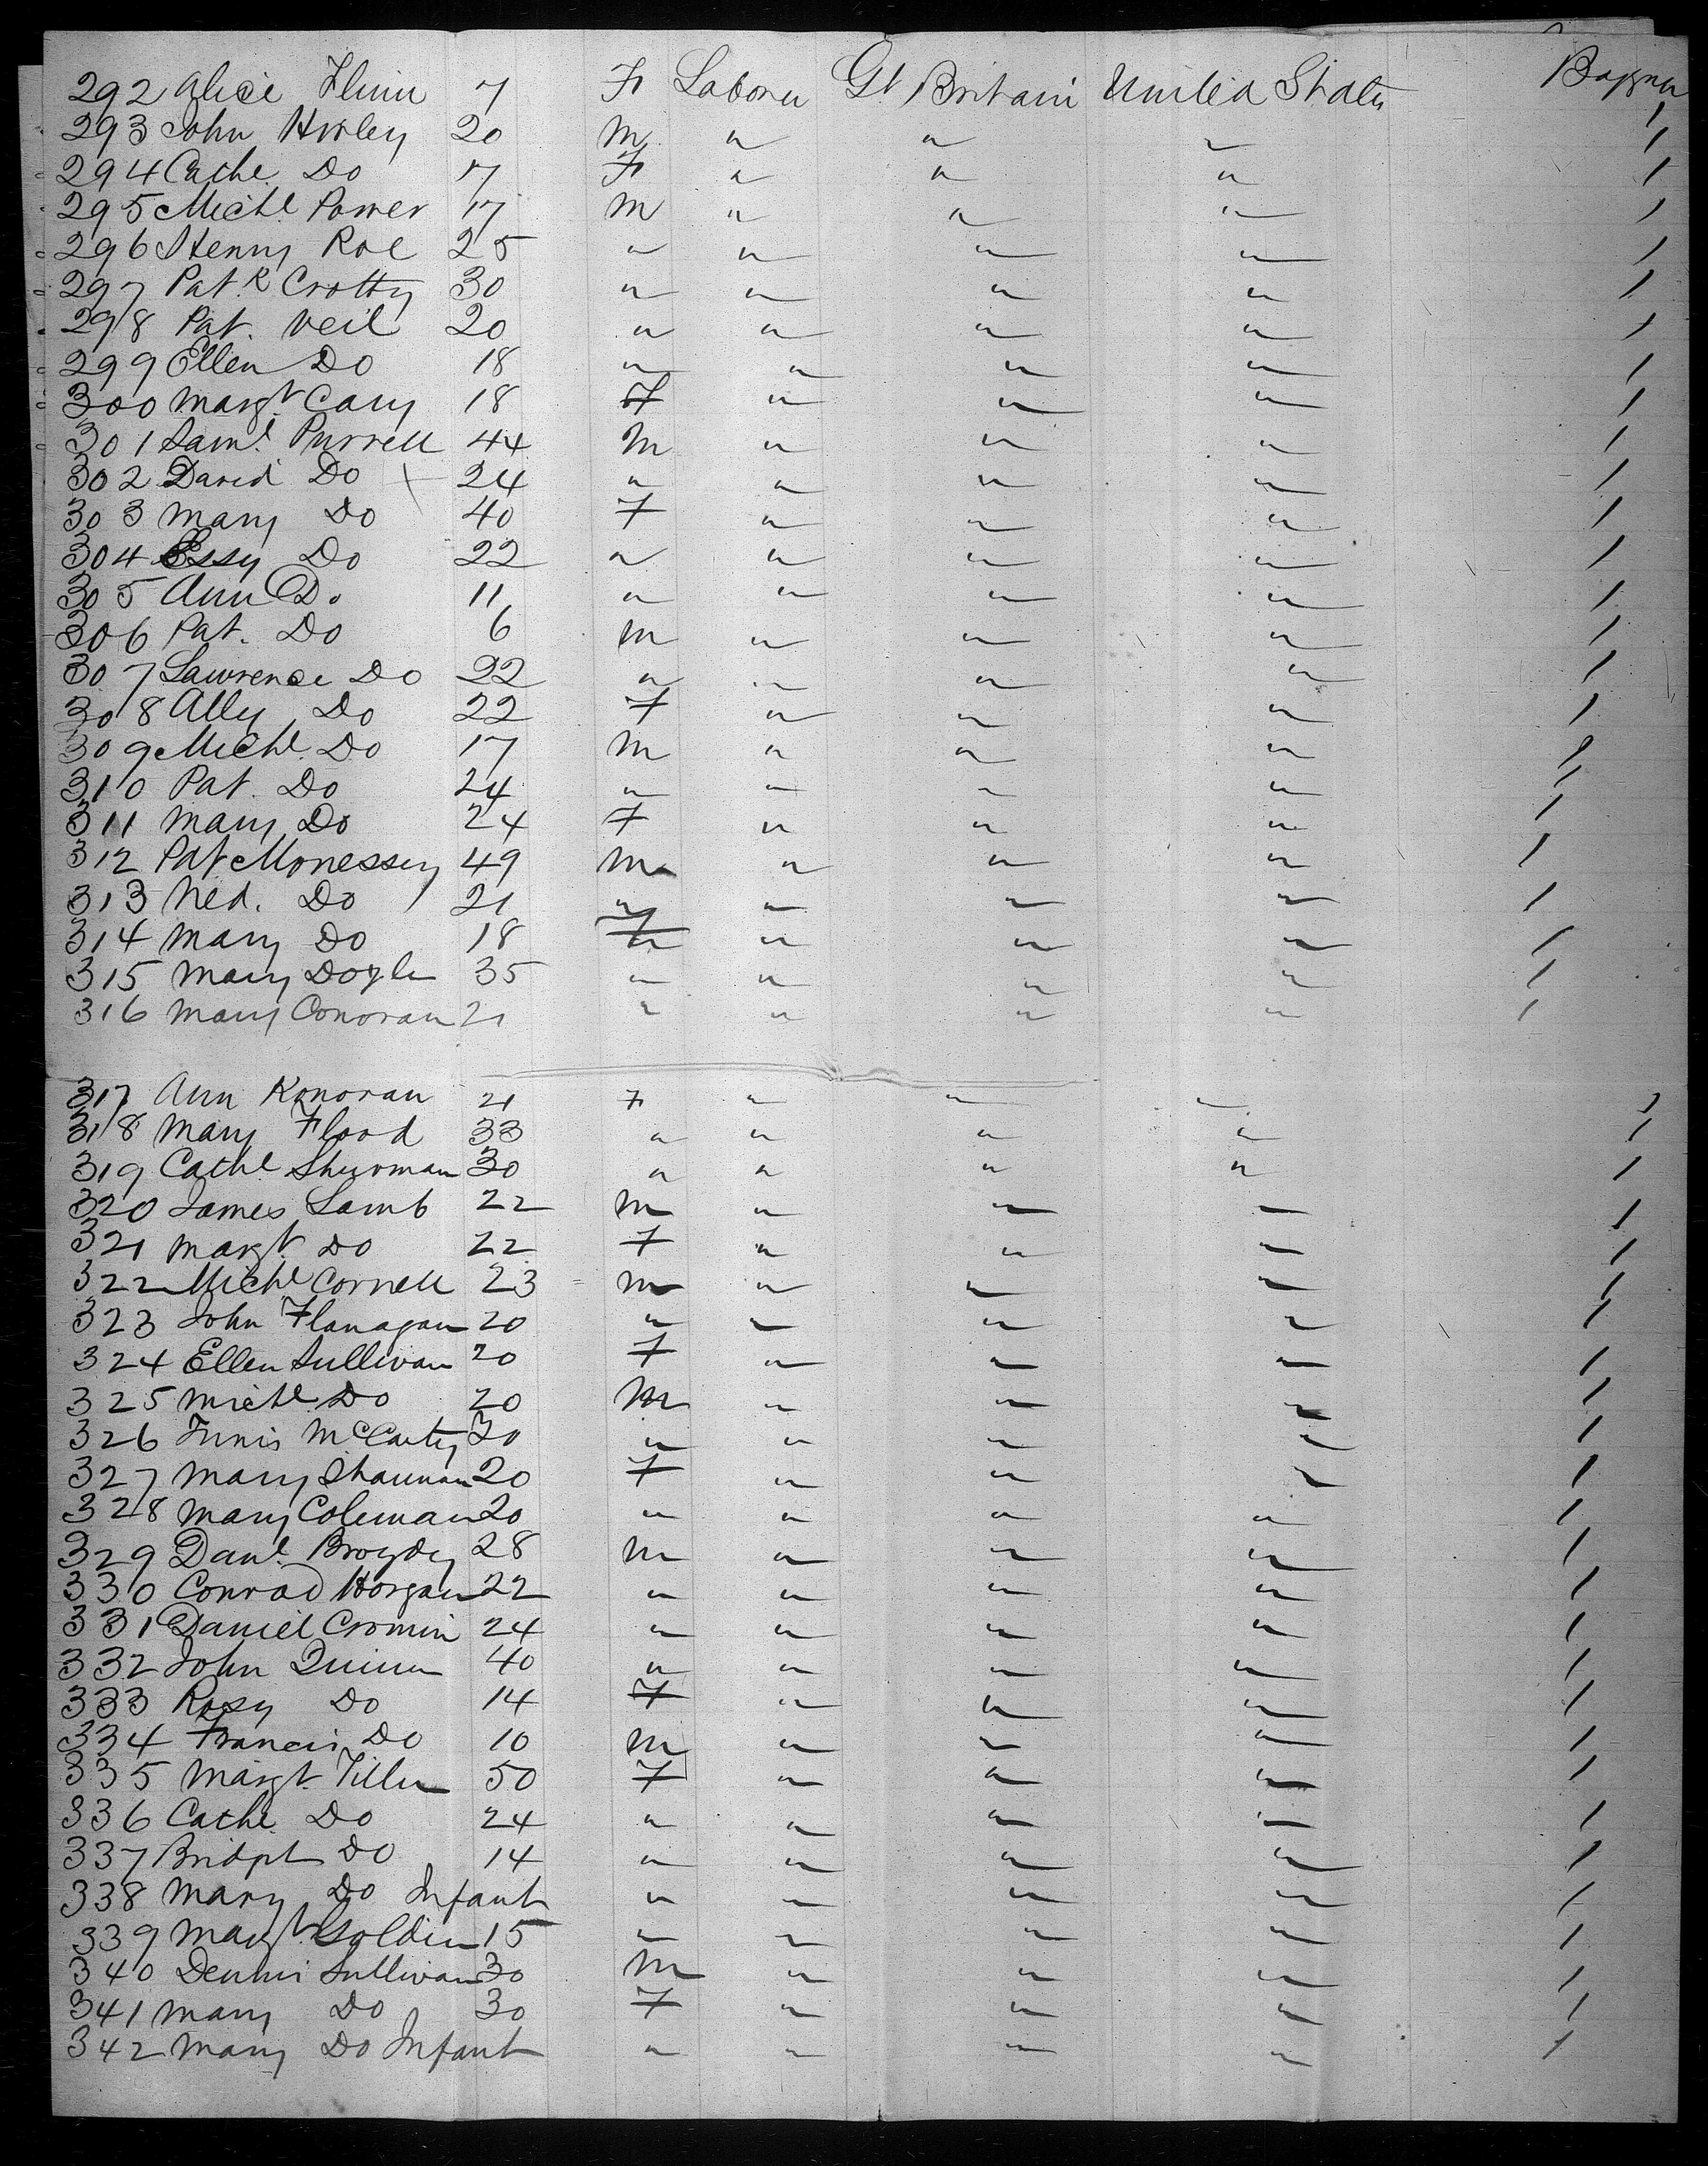 292 Alice Flinn 7 F Laborer Gt Britain United States
293 John Hurley 20 M " " " 1
294 Cathe Do 7 F " " " 1
295 Michl Power 17 M " " " 1
296 Henny Roe 25 " " " " 1
297 Patk Crotty 30 " " " " 1
298 Pat. Veil 20 " " " " 1
299 Ellen Do 18 " " " " 1
300 Margt Cary 18 F " " " 1
301 Saml Purrell 44 M " " " 1
302 David Do 24 " " " " 1
303 Mary Do 40 F " " " 1
304 Essy Do 22 " " " " 1
305 Ann Do 11 " " " " 1
306 Pat. Do 6 M " " " 1
307 Lawrence Do 22 " " " " 1
308 Ally Do 22 F " " " 1
309 Michl Do 17 M " " " 1
310 Pat. Do 24 " " " " 1
311 Mary Do 24 F " " " 1
312 Pat Monessey 49 M " " " 1
313 Ned. Do 21 " " " " 1
314 Mary Do 18 F " " " 1
315 Mary Doyle 35 " " " " 1
316 Mary Conoran 21 " " " " 1
317 Ann Konoran 21 F " " " 1
318 Mary Flood 33 " " " " 1
319 Cathe Shurman 30 " " " " 1
320 James Lamb 22 M " " " 1
321 Margt Do 22 F " " " 1
322 Michl Cornell 23 M " " " 1
323 John Flanagan 20 " " " " 1
324 Ellen Sullivan 20 F " " " 1
325 Michl Do 20 M " " " 1
326 Tunis McCarty 30 " " " " 1
327 Mary Shannan 20 F " " " 1
328 Mary Coleman 20 " " " " 1
329 Danl Brogdy 28 M " " " 1
330 Conrad Horgan 22 " " " " 1
331 Daniel Cromin 24 " " " " 1
332 John Quinn 40 " " " " 1
333 Rosy Do 14 F " " " 1
334 Francis Do 10 M " " " 1
335 Margt Tillen 50 F " " " 1
336 Cathe Do 24 " " " " 1
337 Bridgt Do 14 " " " " 1
338 Mary Do Infant " " " " 1
339 Margt Goldin 15 " " " " 1
340 Dennis Sullivan 30 M " " " 1
341 Mary Do 30 F " " " 1
342 Mary Do Infant " " " " 1